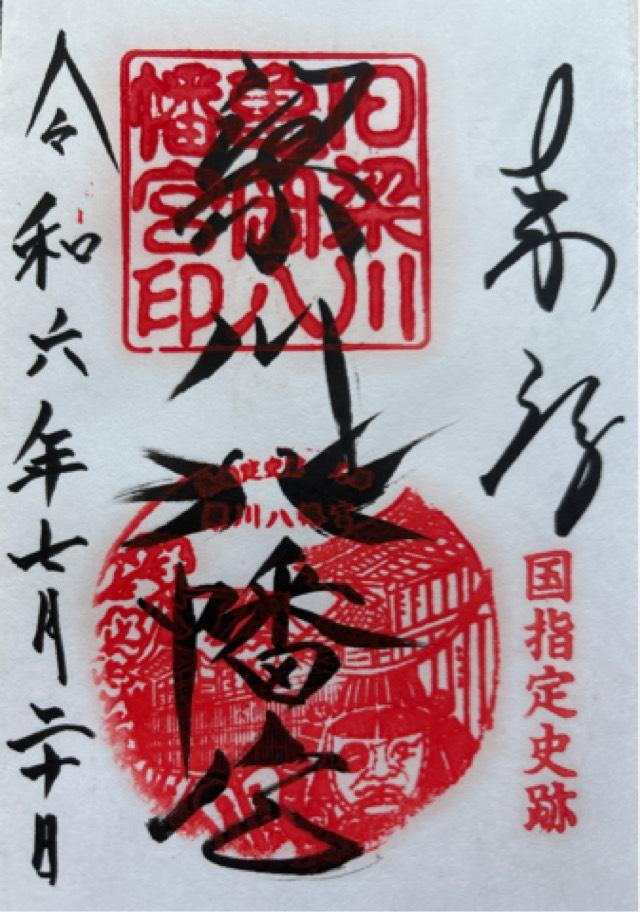 奉拝
国指定史跡
旧梁川
亀岡八
幡宮印
梁川八幡宮
梁川八幡宮
令和六年七月二十日